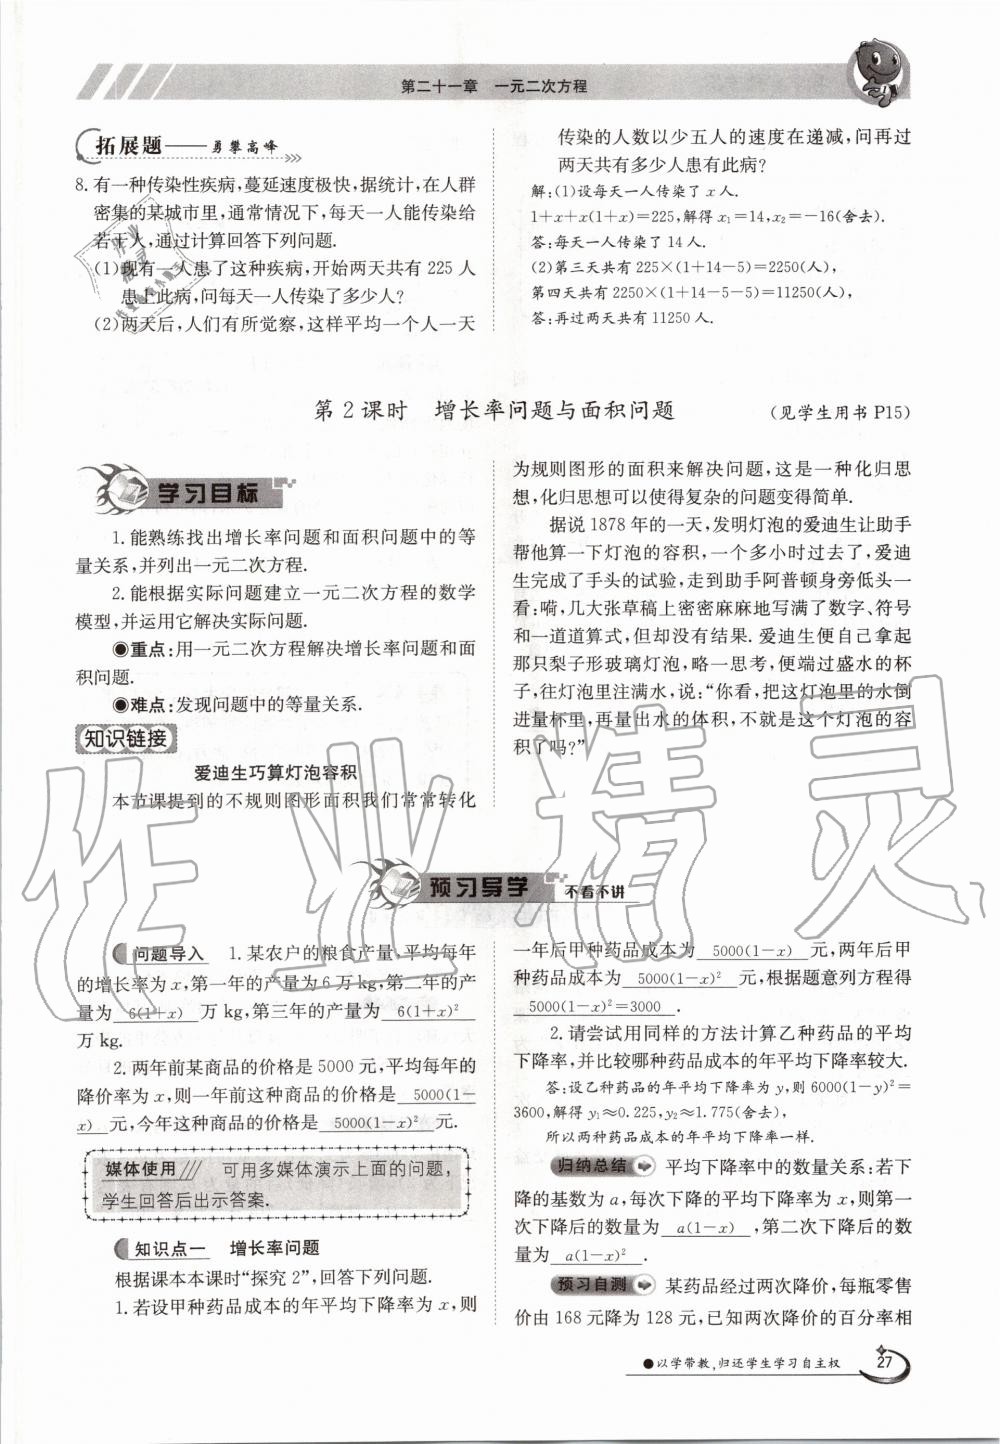 第二十一章　一元二次方程
拓展题——勇攀高峰
8.有一种传染性疾病,蔓延速度极快,据统计,在人群
密集的某城市里,通常情况下,每天一人能传染给
若干人,通过计算回答下列问题.
(1)现有一人患了这种疾病,开始两天共有 225 人
患上此病,问每天一人传染了多少人?
(2)两天后,人们有所觉察,这样平均一个人一天
传染的人数以少五人的速度在递减,问再过
两天共有多少人患有此病?
解:(1)设每天一人传染了 x 人.
1+x+x(1+x)=225,解得 x₁=14,x₂=-16(舍去).
答:每天一人传染了 14 人.
(2)第三天共有 225×(1+14-5)=2250(人),
第四天共有 2250×(1+14-5-5)=11250(人),
答:再过两天共有 11250 人.
第 2 课时　增长率问题与面积问题
(见学生用书 P15)
学习目标
1.能熟练找出增长率问题和面积问题中的等
量关系,并列出一元二次方程.
2.能根据实际问题建立一元二次方程的数学
模型,并运用它解决实际问题.
●重点:用一元二次方程解决增长率问题和面
积问题.
●难点:发现问题中的等量关系.
知识链接
爱迪生巧算灯泡容积
本节课提到的不规则图形面积我们常常转化
为规则图形的面积来解决问题,这是一种化归思
想,化归思想可以使得复杂的问题变得简单.
据说 1878 年的一天,发明灯泡的爱迪生让助手
帮他算一下灯泡的容积,一个多小时过去了,爱迪
生完成了手头的试验,走到助手阿普顿身旁低头一
看:嗬,几大张草稿上密密麻麻地写满了数字、符号
和一道道算式,但却没有结果.爱迪生便自己拿起
那只梨子形玻璃灯泡,略一思考,便端过盛水的杯
子,往灯泡里注满水,说:“你看,把这灯泡里的水倒
进量杯里,再量出水的体积,不就是这个灯泡的容
积了吗?”
预习导学 不看不讲
问题导入　1.某农户的粮食产量,平均每年
的增长率为 x,第一年的产量为 6 万 kg,第二年的产
量为 6(1+x) 万 kg,第三年的产量为 6(1+x)²
万 kg.
2.两年前某商品的价格是 5000 元,平均每年的
降价率为 x,则一年前这种商品的价格是 5000(1-
x) 元,今年这种商品的价格是 5000(1-x)² 元.
媒体使用　可用多媒体演示上面的问题,
学生回答后出示答案.
知识点一　增长率问题
根据课本本课时“探究 2”,回答下列问题.
1.若设甲种药品成本的年平均下降率为 x,则
一年后甲种药品成本为 5000(1-x) 元,两年后甲
种药品成本为 5000(1-x)² 元,根据题意列方程得
5000(1-x)²=3000 .
2.请尝试用同样的方法计算乙种药品的平均
下降率,并比较哪种药品成本的年平均下降率较大.
答:设乙种药品的年平均下降率为 y,则 6000(1-y)²=
3600,解得 y₁≈0.225,y₂≈1.775(舍去),
所以两种药品成本的年平均下降率一样.
归纳总结　平均下降率中的数量关系:若下
降的基数为 a,每次下降的平均下降率为 x,则第一
次下降后的数量为 a(1-x) ,第二次下降后的数
量为 a(1-x)² .
预习自测　某药品经过两次降价,每瓶零售
价由 168 元降为 128 元,已知两次降价的百分率相
●以学带教,归还学生学习自主权
27
作业精灵